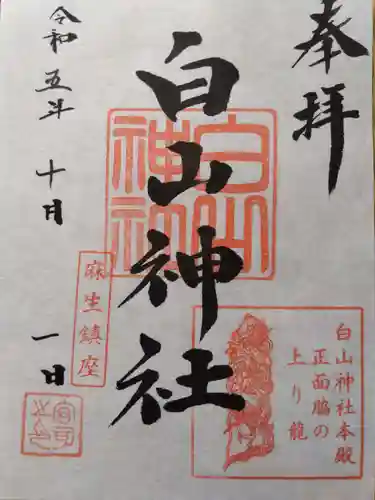 奉拝
白山神社
白山神社
麻生鎮座
白山神社本殿
正面脇の
上り龍
令和五年十月一日
宮司之印